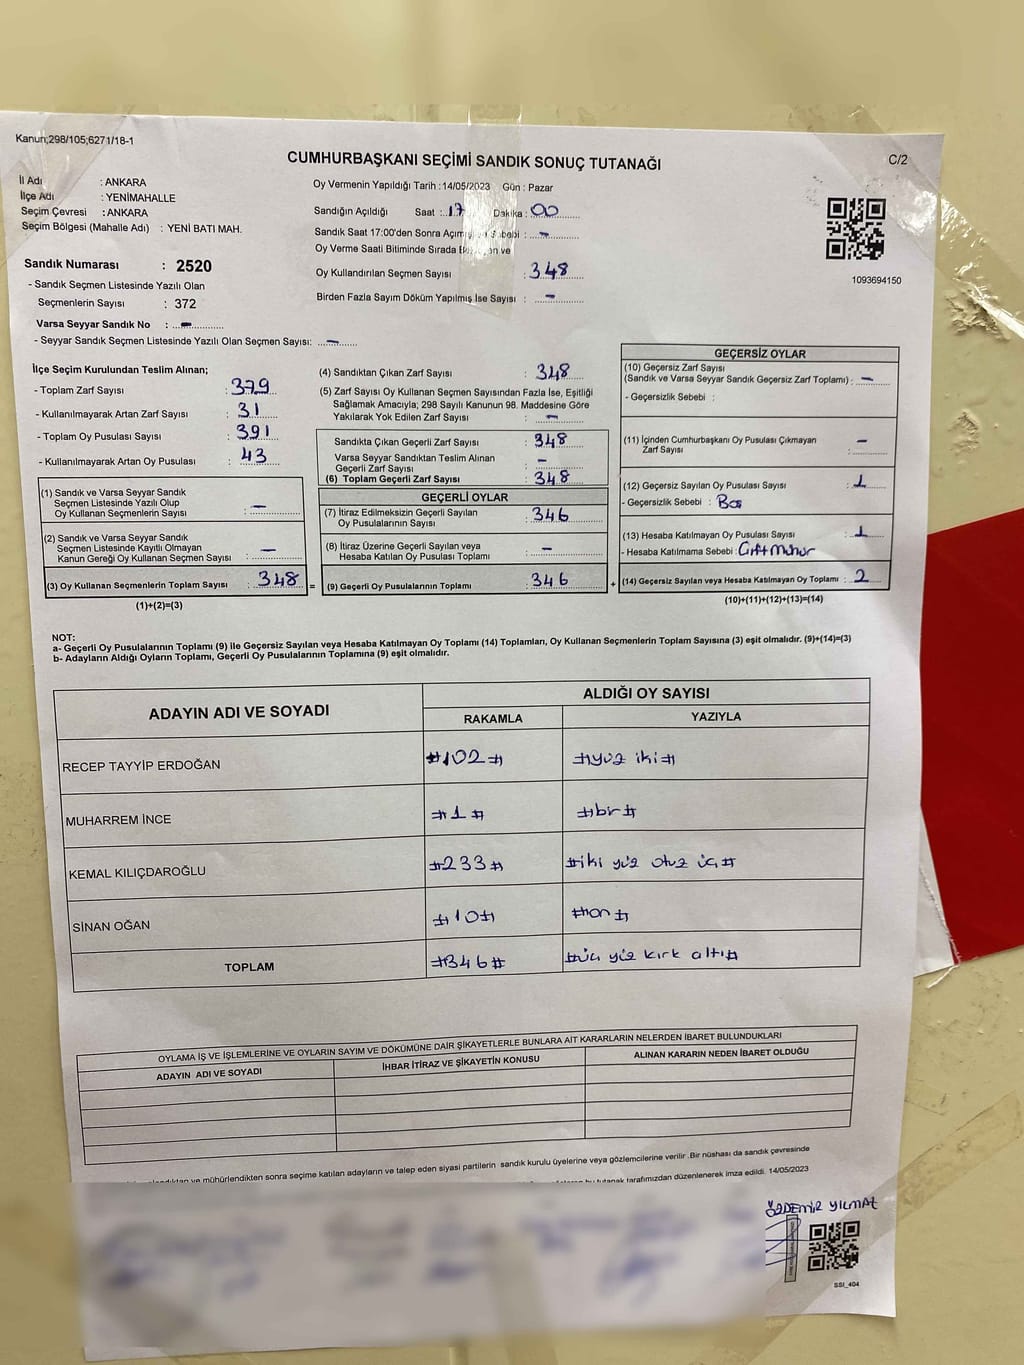 Kanun;298/105;6271/18-1
CUMHURBAŞKANI SEÇİMİ SANDIK SONUÇ TUTANAĞI
C/2
İl Adı : ANKARA
İlçe Adı : YENİMAHALLE
Seçim Çevresi : ANKARA
Seçim Bölgesi (Mahalle Adı) : YENİ BATI MAH.
Sandık Numarası : 2520
- Sandık Seçmen Listesinde Yazılı Olan
Seçmenlerin Sayısı : 372
Varsa Seyyar Sandık No : -
- Seyyar Sandık Seçmen Listesinde Yazılı Olan Seçmen Sayısı: -
Oy Vermenin Yapıldığı Tarih : 14/05/2023 Gün : Pazar
Sandığın Açıldığı Saat : 17 Dakika : 00
Sandık Saat 17:00'den Sonra Açım Sebebi : -
Oy Verme Saati Bitiminde Sırada ve
Oy Kullandırılan Seçmen Sayısı : 348
Birden Fazla Sayım Döküm Yapılmış İse Sayısı : -
1093694150
İlçe Seçim Kurulundan Teslim Alınan;
- Toplam Zarf Sayısı : 379
- Kullanılmayarak Artan Zarf Sayısı : 31
- Toplam Oy Pusulası Sayısı : 391
- Kullanılmayarak Artan Oy Pusulası : 43
(1) Sandık ve Varsa Seyyar Sandık
Seçmen Listesinde Yazılı Olup
Oy Kullanan Seçmenlerin Sayısı : -
(2) Sandık ve Varsa Seyyar Sandık
Seçmen Listesinde Kayıtlı Olmayan
Kanun Gereği Oy Kullanan Seçmen Sayısı : -
(3) Oy Kullanan Seçmenlerin Toplam Sayısı : 348 =
(1)+(2)=(3)
(4) Sandıktan Çıkan Zarf Sayısı : 348
(5) Zarf Sayısı Oy Kullanan Seçmen Sayısından Fazla İse, Eşitliği
Sağlamak Amacıyla; 298 Sayılı Kanunun 98. Maddesine Göre
Yakılarak Yok Edilen Zarf Sayısı : -
Sandıkta Çıkan Geçerli Zarf Sayısı : 348
Varsa Seyyar Sandıktan Teslim Alınan
Geçerli Zarf Sayısı : -
(6) Toplam Geçerli Zarf Sayısı : 348
GEÇERLİ OYLAR
(7) İtiraz Edilmeksizin Geçerli Sayılan
Oy Pusulalarının Sayısı : 346
(8) İtiraz Üzerine Geçerli Sayılan veya
Hesaba Katılan Oy Pusulası Toplamı : -
(9) Geçerli Oy Pusulalarının Toplamı : 346 +
GEÇERSİZ OYLAR
(10) Geçersiz Zarf Sayısı
(Sandık ve Varsa Seyyar Sandık Geçersiz Zarf Toplamı) : -
- Geçersizlik Sebebi :
(11) İçinden Cumhurbaşkanı Oy Pusulası Çıkmayan
Zarf Sayısı : -
(12) Geçersiz Sayılan Oy Pusulası Sayısı : 1
- Geçersizlik Sebebi : Boş
(13) Hesaba Katılmayan Oy Pusulası Sayısı : 1
- Hesaba Katılmama Sebebi : Çift Mühür
(14) Geçersiz Sayılan veya Hesaba Katılmayan Oy Toplamı : 2
(10)+(11)+(12)+(13)=(14)
NOT:
a- Geçerli Oy Pusulalarının Toplamı (9) ile Geçersiz Sayılan veya Hesaba Katılmayan Oy Toplamı (14) Toplamları, Oy Kullanan Seçmenlerin Toplam Sayısına (3) eşit olmalıdır. (9)+(14)=(3)
b- Adayların Aldığı Oyların Toplamı, Geçerli Oy Pusulalarının Toplamına (9) eşit olmalıdır.
ADAYIN ADI VE SOYADI
ALDIĞI OY SAYISI
RAKAMLA YAZIYLA
RECEP TAYYİP ERDOĞAN #102# #yüz iki#
MUHARREM İNCE #1# #bir#
KEMAL KILIÇDAROĞLU #233# #iki yüz otuz üç#
SİNAN OĞAN #10# #on#
TOPLAM #346# #üç yüz kırk altı#
OYLAMA İŞ VE İŞLEMLERİNE VE OYLARIN SAYIM VE DÖKÜMÜNE DAİR ŞİKAYETLERLE BUNLARA AİT KARARLARIN NELERDEN İBARET BULUNDUKLARI
ADAYIN ADI VE SOYADI İHBAR İTİRAZ VE ŞİKAYETİN KONUSU ALINAN KARARIN NEDEN İBARET OLDUĞU
ve mühürlendikten sonra seçime katılan adayların ve talep eden siyasi partilerin sandık kurulu üyelerine veya gözlemcilerine verilir .Bir nüshası da sandık çevresinde
tutanak tarafımızdan düzenlenerek imza edildi. 14/05/2023
ÖZDEMİR YILMAZ
SSI_404